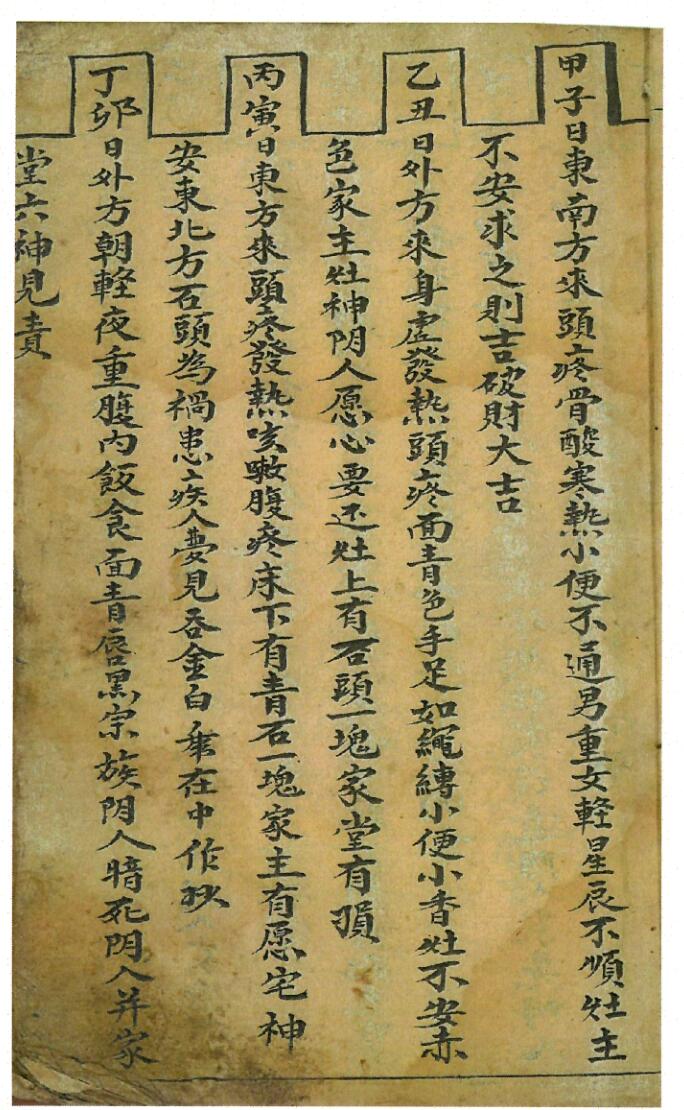 甲子日東南方來頭疼骨酸寒熱小便不通男重女輕星辰不順灶主
不安求之則吉破財大吉
乙丑日外方來身虛發熱頭疼面青色手足如繩縛小便小香灶不安赤
色家主灶神阴人愿心要还灶上有石頭一塊家堂有損
丙寅日東方來頭疼發熱咳嗽腹疼床下有青石一塊家主有愿宅神
安東北方石頭為禍患疾人夢見吞金白在中作
丁卯日外方朝軽夜重腹内飯食面青唇黑宗族阴人暗死阴人并家
堂六神見責